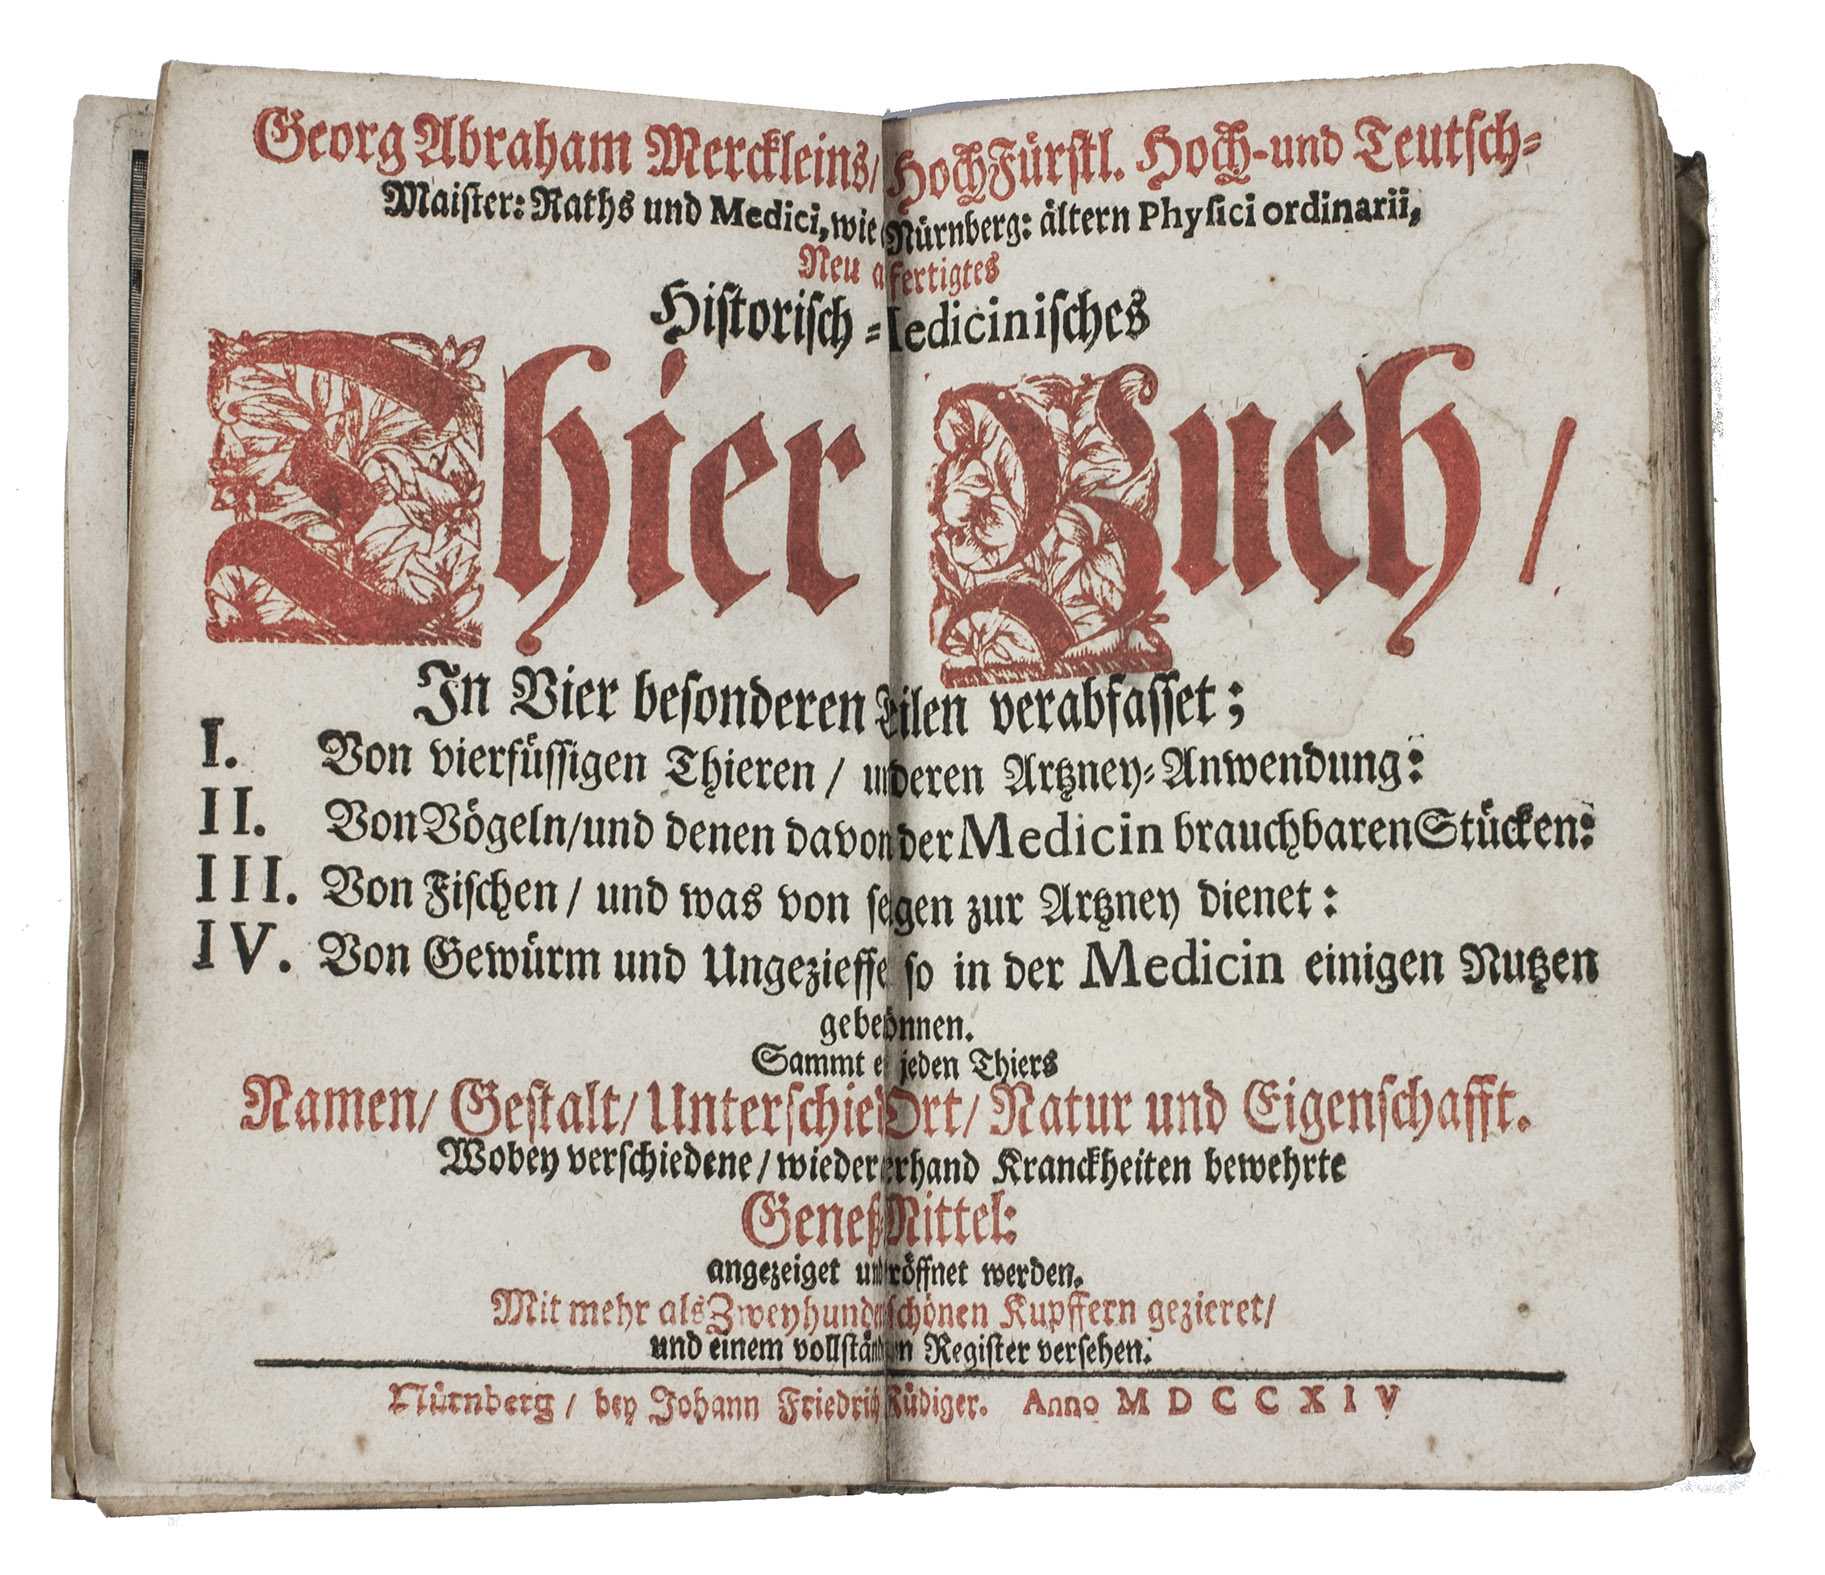 Georg Abraham Merckleins/ HochFürstl. Hoch-und Teutsch=
Maister: Raths und Medici, wie Nürnberg: ältern Physici ordinarii,
Neu fertigtes
Historisch=Medicinisches
Thier Buch/
In Vier besonderen Teilen verabfasset;
I. Von vierfüssigen Thieren / und deren Artzney=Anwendung:
II. Von Vögeln/und denen davon der Medicin brauchbaren Stücken:
III. Von Fischen / und was von zur Artzney dienet:
IV. Von Gewürm und Ungezieffer so in der Medicin einigen Nutzen
geben können.
Sammt jeden Thiers
Namen/ Gestalt/ Unterschied Ort/ Natur und Eigenschafft.
Wobey verschiedene/ wieder allerhand Kranckheiten bewehrte
Geneß=Mittel:
angezeiget und eröffnet werden.
Mit mehr als Zweyhundert schönen Kupffern gezieret/
und einem vollständigen Register versehen.
Nürnberg / bey Johann Friedrich Rüdiger. Anno MDCCXIV